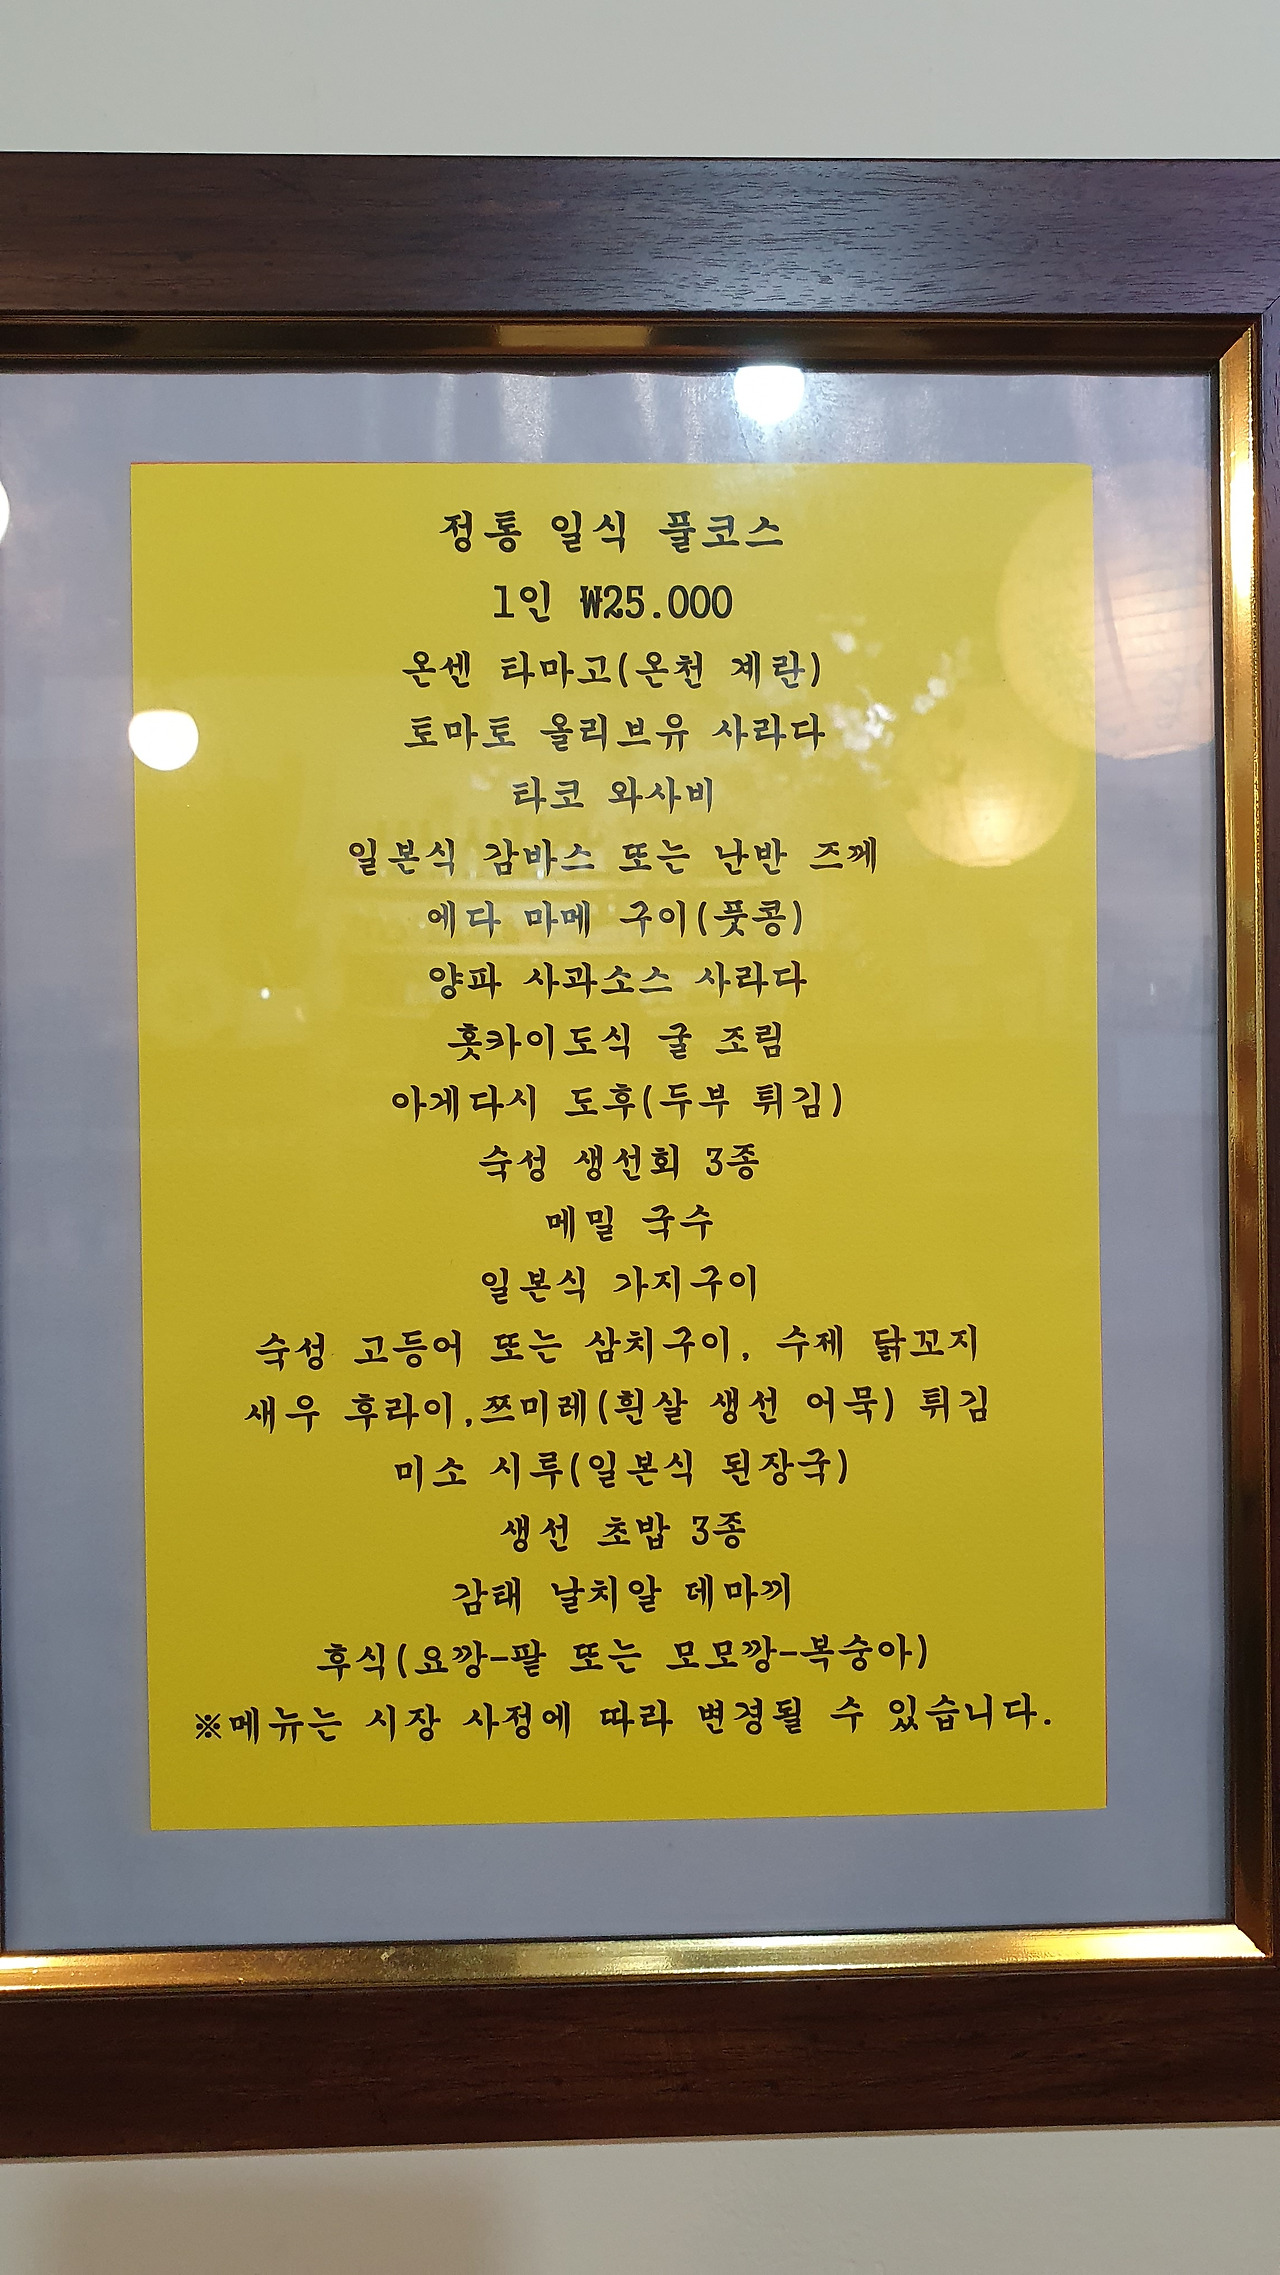 정통 일식 풀코스
1인 ₩25.000
온센 타마고(온천 계란)
토마토 올리브유 사라다
타코 와사비
일본식 감바스 또는 난반 즈께
에다 마메 구이(풋콩)
양파 사과소스 사라다
홋카이도식 굴 조림
아게다시 도후(두부 튀김)
숙성 생선회 3종
메밀 국수
일본식 가지구이
숙성 고등어 또는 삼치구이, 수제 닭꼬지
새우 후라이,쯔미레(흰살 생선 어묵) 튀김
미소 시루(일본식 된장국)
생선 초밥 3종
감태 날치알 데마끼
후식(요깡-팥 또는 모모깡-복숭아)
※메뉴는 시장 사정에 따라 변경될 수 있습니다.